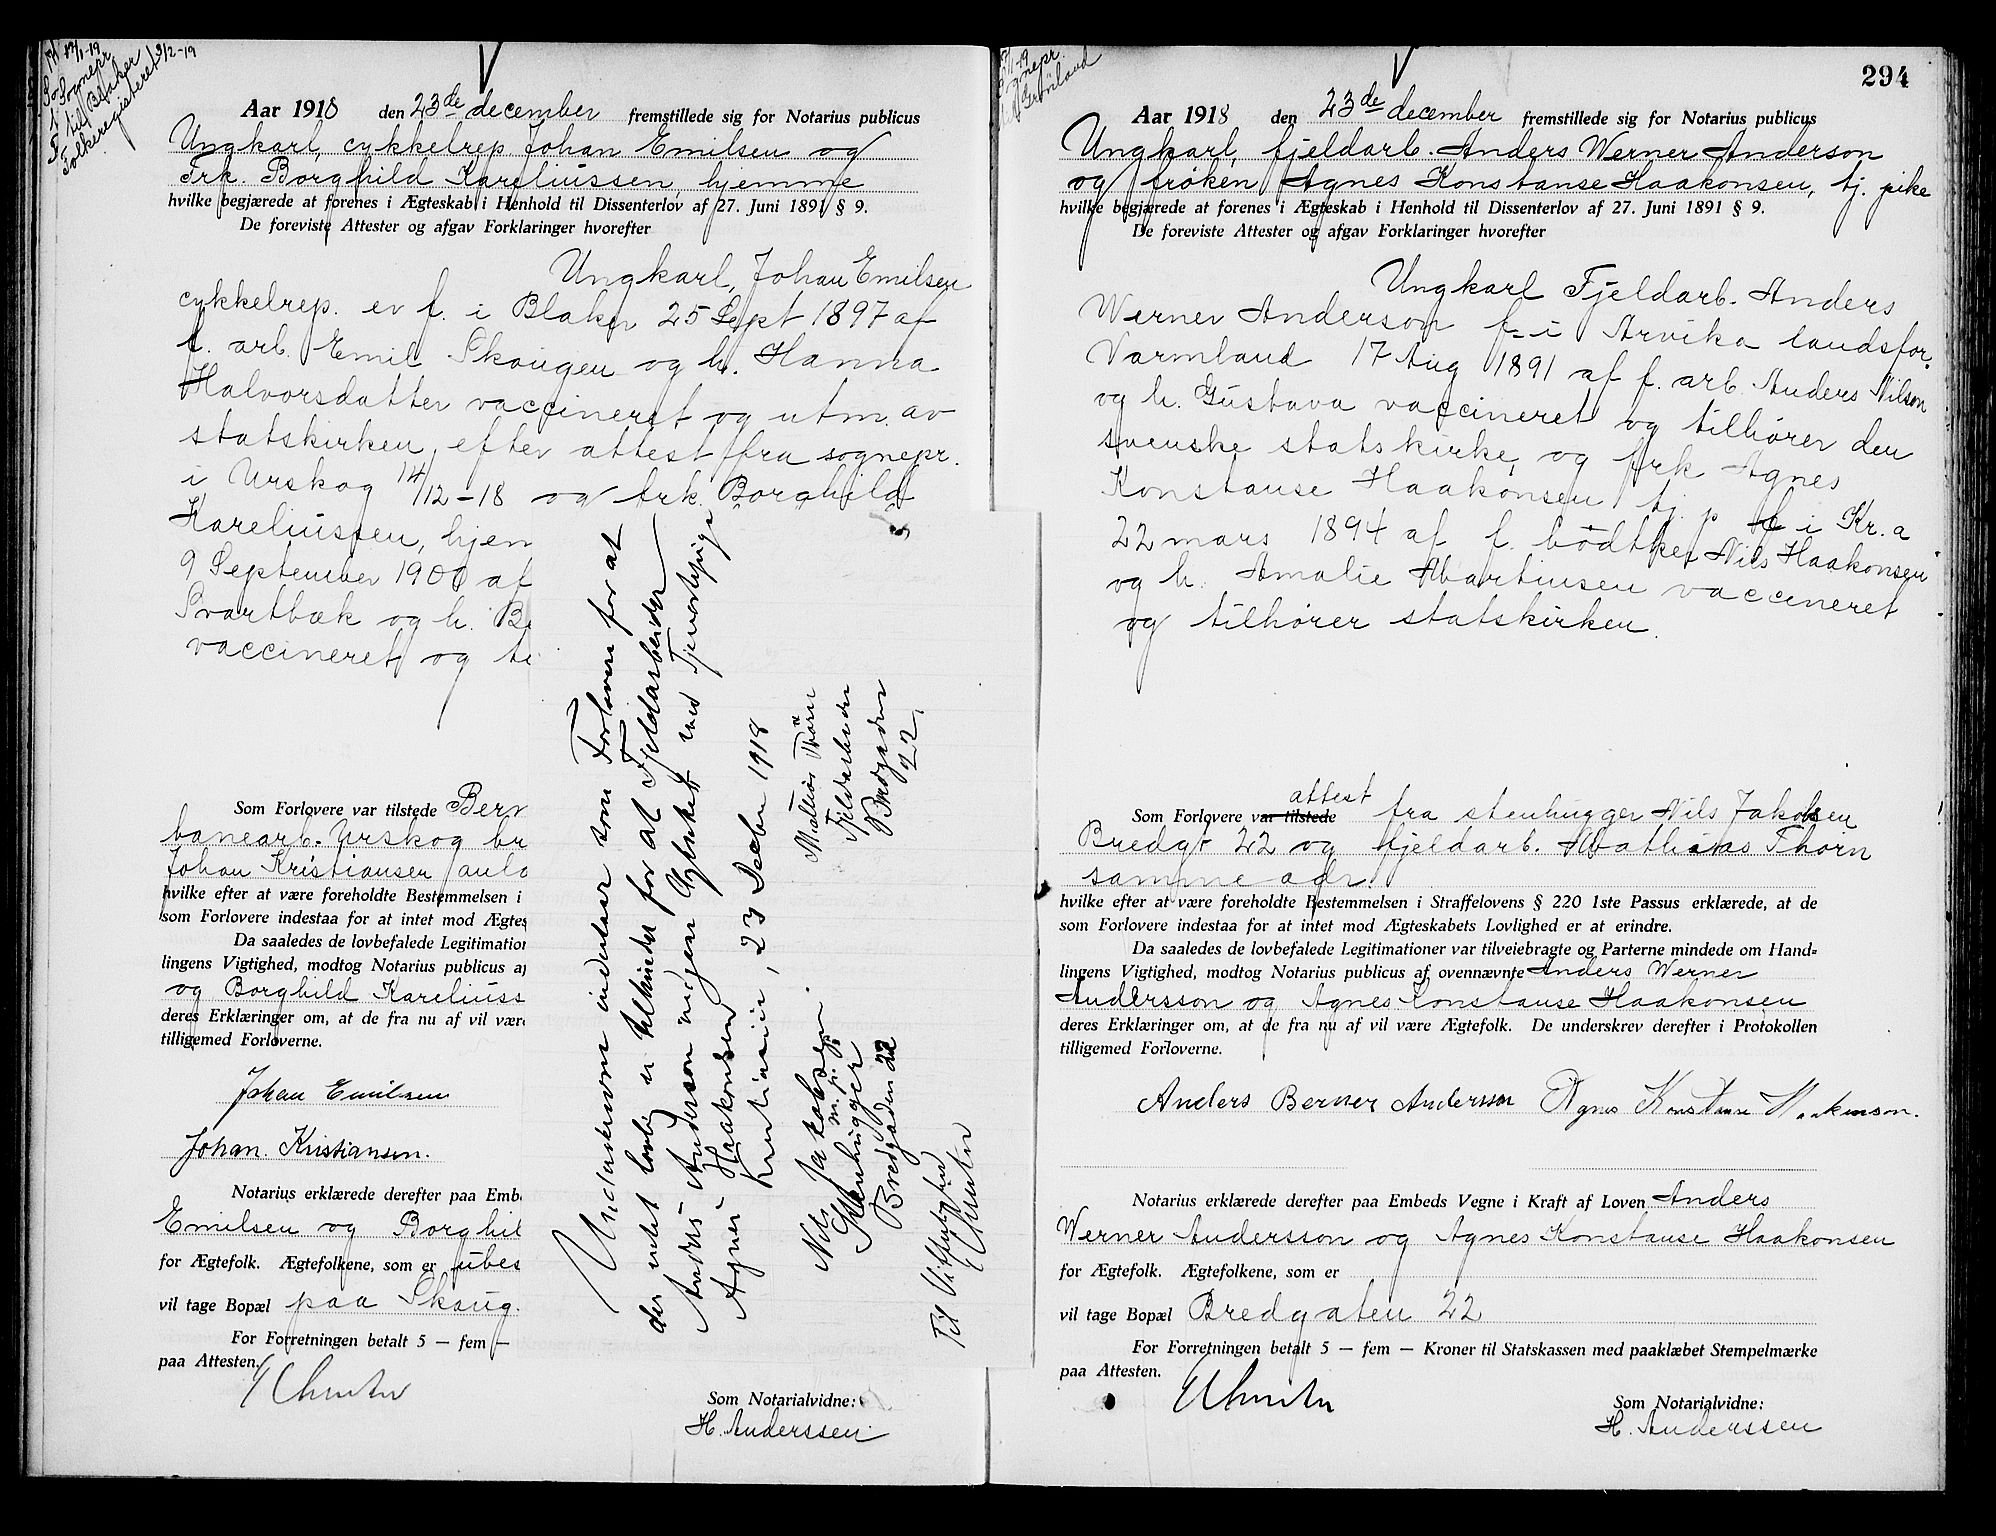 19/11-19
Sognepr
til Blaker
Folkeregisteret 3/2-19
Aar 1918 den 23de december fremstillede sig for Notarius publicus
Ungkarl, cykkelrep. Johan Emilsen og
Frk. Borghild Kareliussen, hjemme
hvilke begjærede at forenes i Ægteskab i Henhold til Dissenterlov af 27. Juni 1891 § 9.
De foreviste Attester og afgav Forklaringer hvorefter
Ungkarl, Johan Emilsen
cykkelrep. er f. i Blaker 25 Sept 1897 af
f. arb. Emil Skaugen og h. Hanna
Halvorsdatter vaccineret og utm. av
statskirken efter attest fra sognepr.
i Urskog 14/12-18 og frk. Borghild
Kareliussen, hjem
9 September 1900 af
Svartbæk og h. Be
vaccineret og ti
Som Forlovere var tilstede Bern
banearb. Urskog br
Johan Kristiansen anlæ
hvilke efter at være foreholdte Bestemmelsen i
som Forlovere indestaa for at intet mod Ægtes
Da saaledes de lovbefalede Legitimation
lingens Vigtighed, modtog Notarius publicus a
og Borghild Kareliuss
deres Erklæringer om, at de fra nu af vil være
tilligemed Forloverne.
Johan Emilsen
Johan. Kristiansen.
Notarius erklærede derefter paa Embe
Emilsen og Borghil
for Ægtefolk. Ægtefolkene, som er ubes
vil tage Bopæl paa Skaug.
For Forretningen betalt 5 — fem —
paa Attesten.
Som Notarialvidne:
H. Anderssen
Undaskrevne indestaar som Forlovere for at
der intet lovlig er til hinder for at Fjeldarbeider
Anders Anderson mojen Gylsket med Tjenestepige
Agnes Haakonsen
Kristiania, 23 Decbr 1918
Nils Jakobsen. Mathias Thörn
m. p. p. Fjeldarbeider
Stenhugger Bredgaden
Bredgaden 22 22,
Til Vitterlighed
294
Sognepr.
Grønland
Aar 1918 den 23de december fremstillede sig for Notarius publicus
Ungkarl, fjeldarb. Anders Werner Anderson
og frøken Agnes Konstanse Haakonsen, tj. pike
hvilke begjærede at forenes i Ægteskab i Henhold til Dissenterlov af 27. Juni 1891 § 9.
De foreviste Attester og afgav Forklaringer hvorefter
Ungkarl Fjeldarb. Anders
Werner Anderson f. i Arvika landsfor.
Varmland 17 Aug 1891 af f. arb. Anders Nilson
og h. Gustava vaccineret og tilhører den
svenske statskirke, og frk Agnes
Konstanse Haakonsen tj. p f. i Kr.a
22 mars 1894 af f. bødtker Nils Haakonsen
og h. Amalie Martinsen vaccineret
og tilhører statskirken.
Som Forlovere var tilstede attest fra stenhugger Nils Jakobsen
Bredgt 22 og fjeldarb. Mathias Thørn
samme adr.
hvilke efter at være foreholdte Bestemmelsen i Straffelovens § 220 1ste Passus erklærede, at de
som Forlovere indestaa for at intet mod Ægteskabets Lovlighed er at erindre.
Da saaledes de lovbefalede Legitimationer var tilveiebragte og Parterne mindede om Hand-
lingens Vigtighed, modtog Notarius publicus af ovennævnte Anders Werner
Andersson og Agnes Konstanse Haakonsen
deres Erklæringer om, at de fra nu af vil være Ægtefolk. De underskrev derefter i Protokollen
tilligemed Forloverne.
Anders Berner Andersson Agnes Konstanse Haakonson.
Notarius erklærede derefter paa Embeds Vegne i Kraft af Loven Anders
Werner Andersson og Agnes Konstanse Haakonsen
for Ægtefolk. Ægtefolkene, som er
vil tage Bopæl Bredgaten 22
For Forretningen betalt 5 — fem — Kroner til Statskassen med paaklæbet Stempelmærke
paa Attesten.
Som Notarialvidne:
H. Anderssen